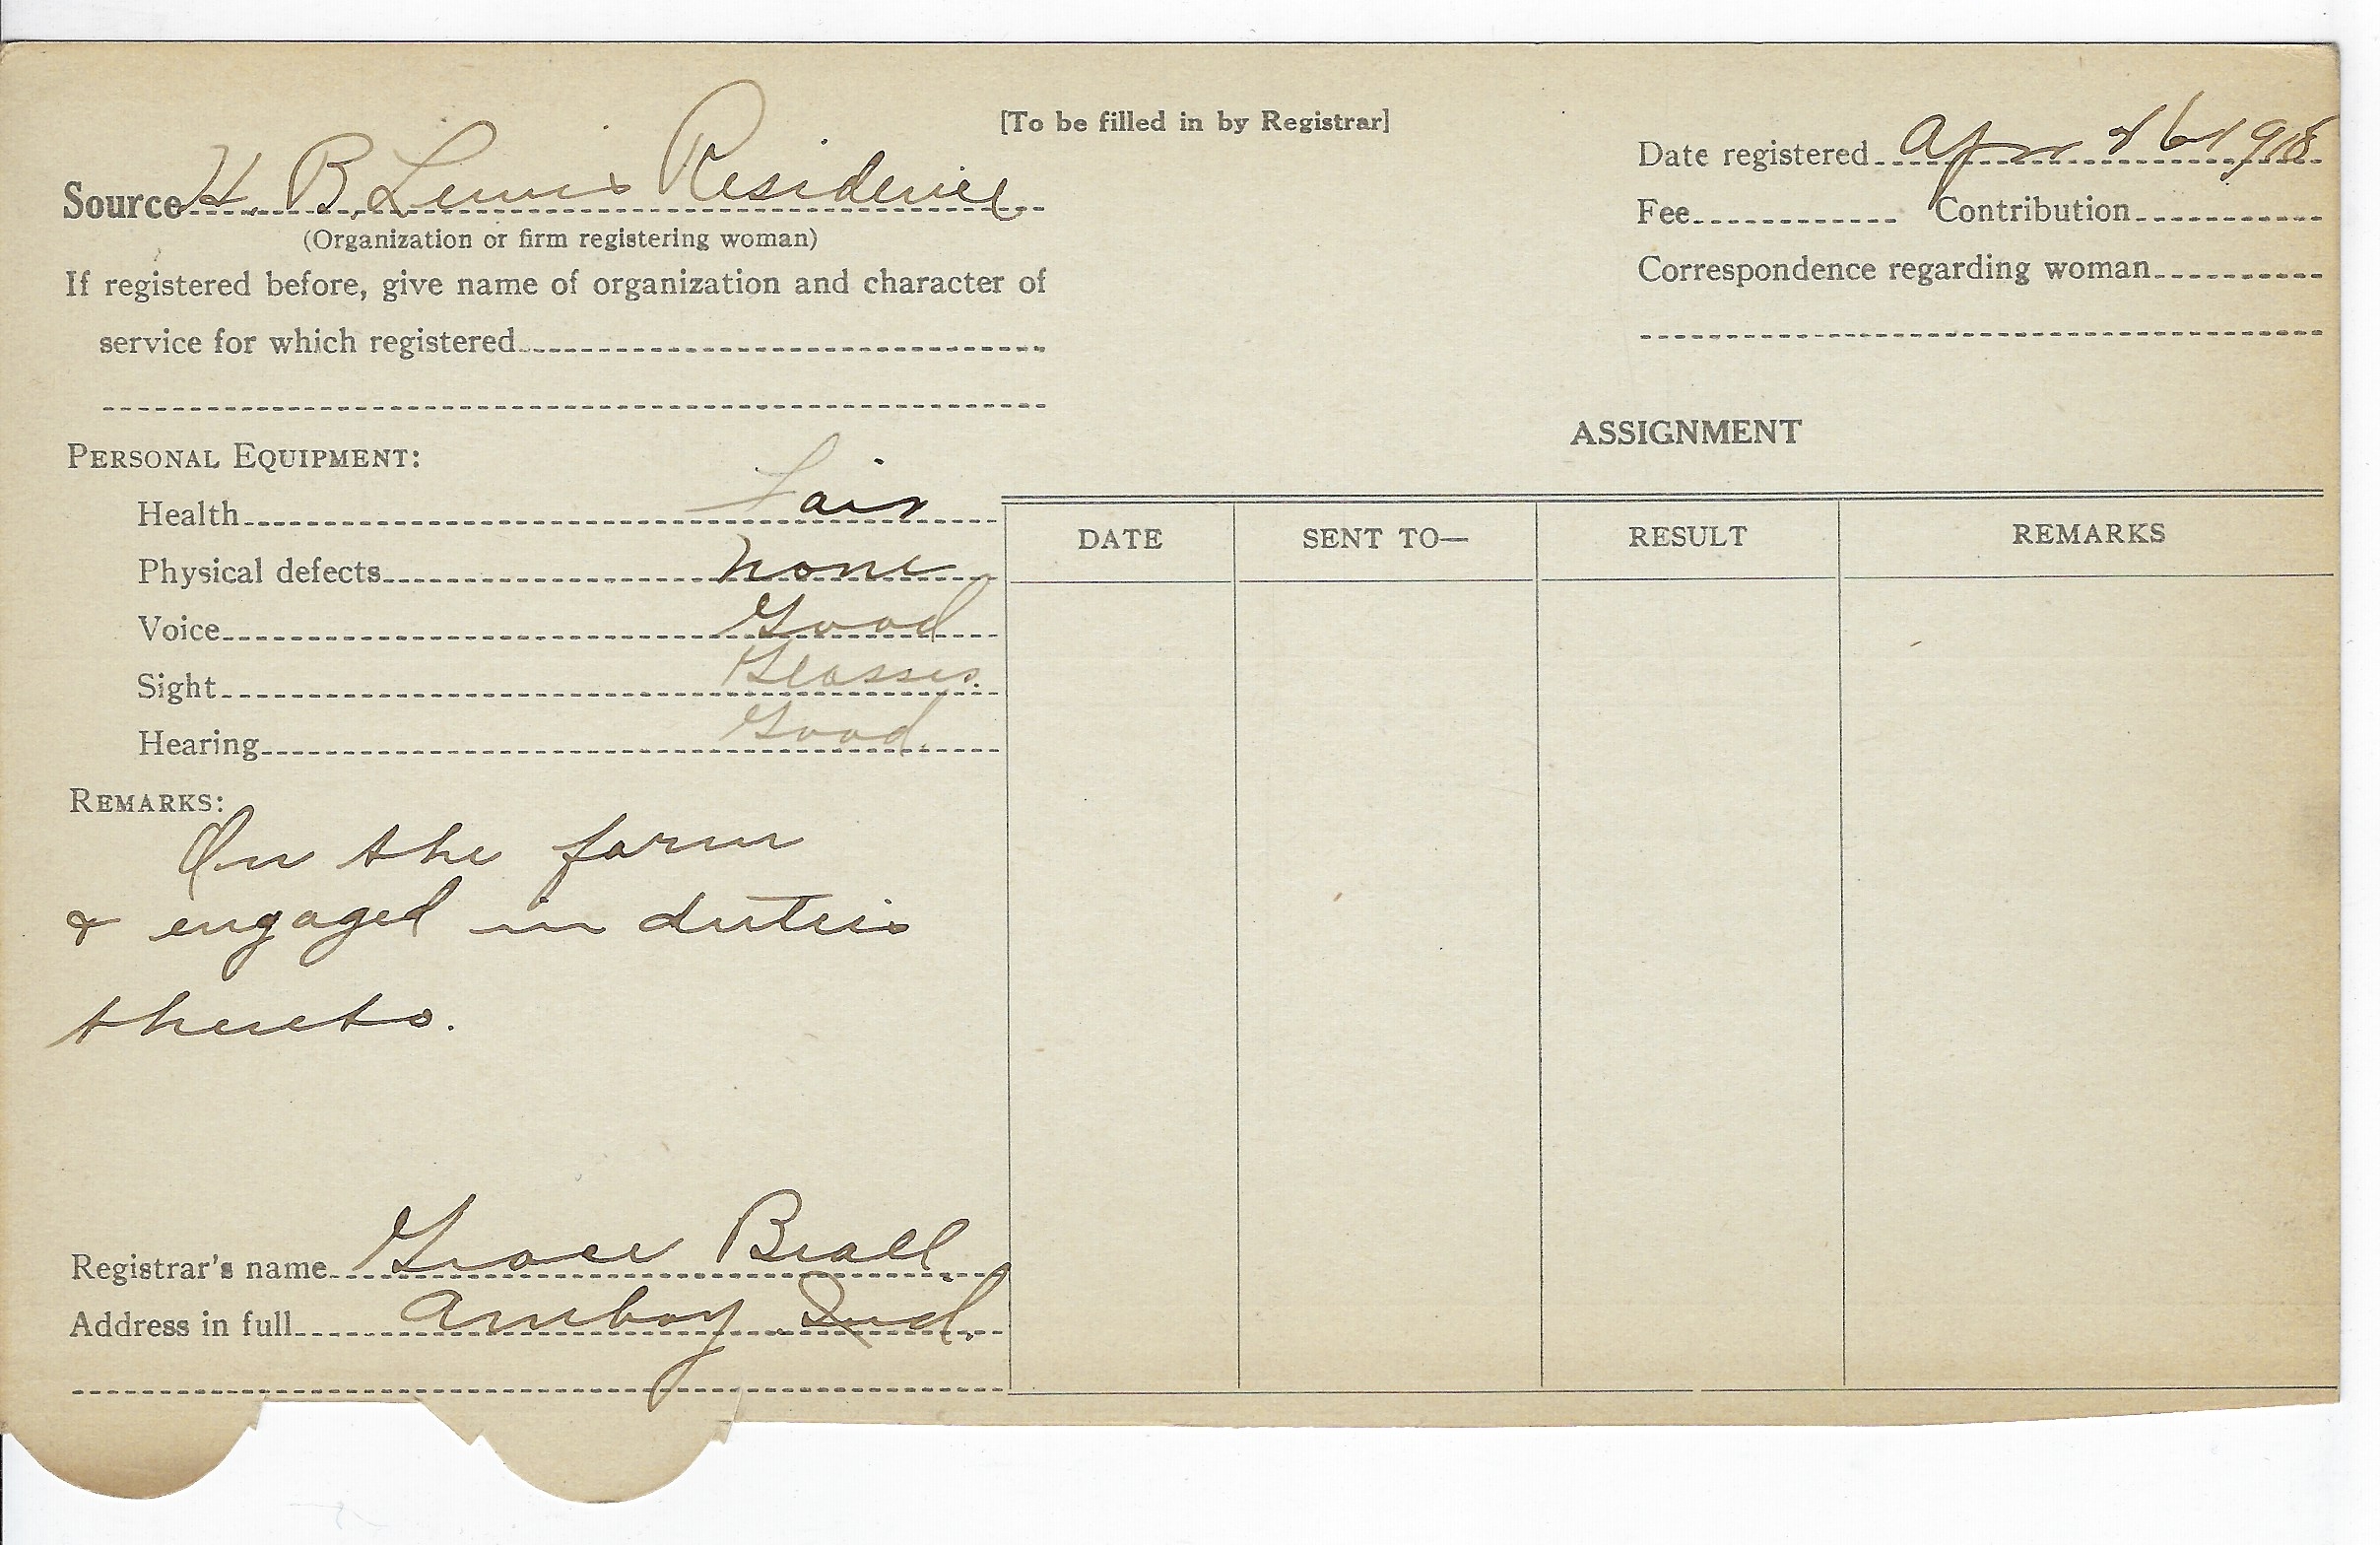 [To be filled in by Registrar]
Source H. B. Lewis Residence
(Organization or firm registering woman)
If registered before, give name of organization and character of
service for which registered
Date registered Apr 26 1918
Fee Contribution
Correspondence regarding woman
PERSONAL EQUIPMENT:
Health Fair
Physical defects none
Voice Good
Sight Glasses.
Hearing Good.
REMARKS:
On the farm
& engaged in duties
thereto.
Registrar's name Grace Beall
Address in full Amboy Ind.
ASSIGNMENT
DATE SENT TO— RESULT REMARKS